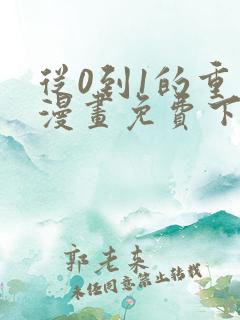 從0到1的重
漫畫免費下
郭老來
未經同意禁止转載